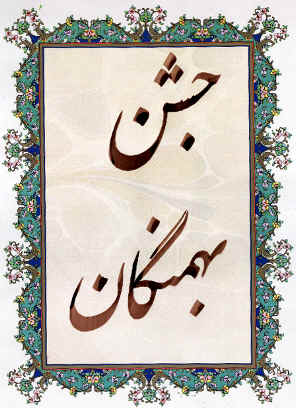 جشن
بهمنگان